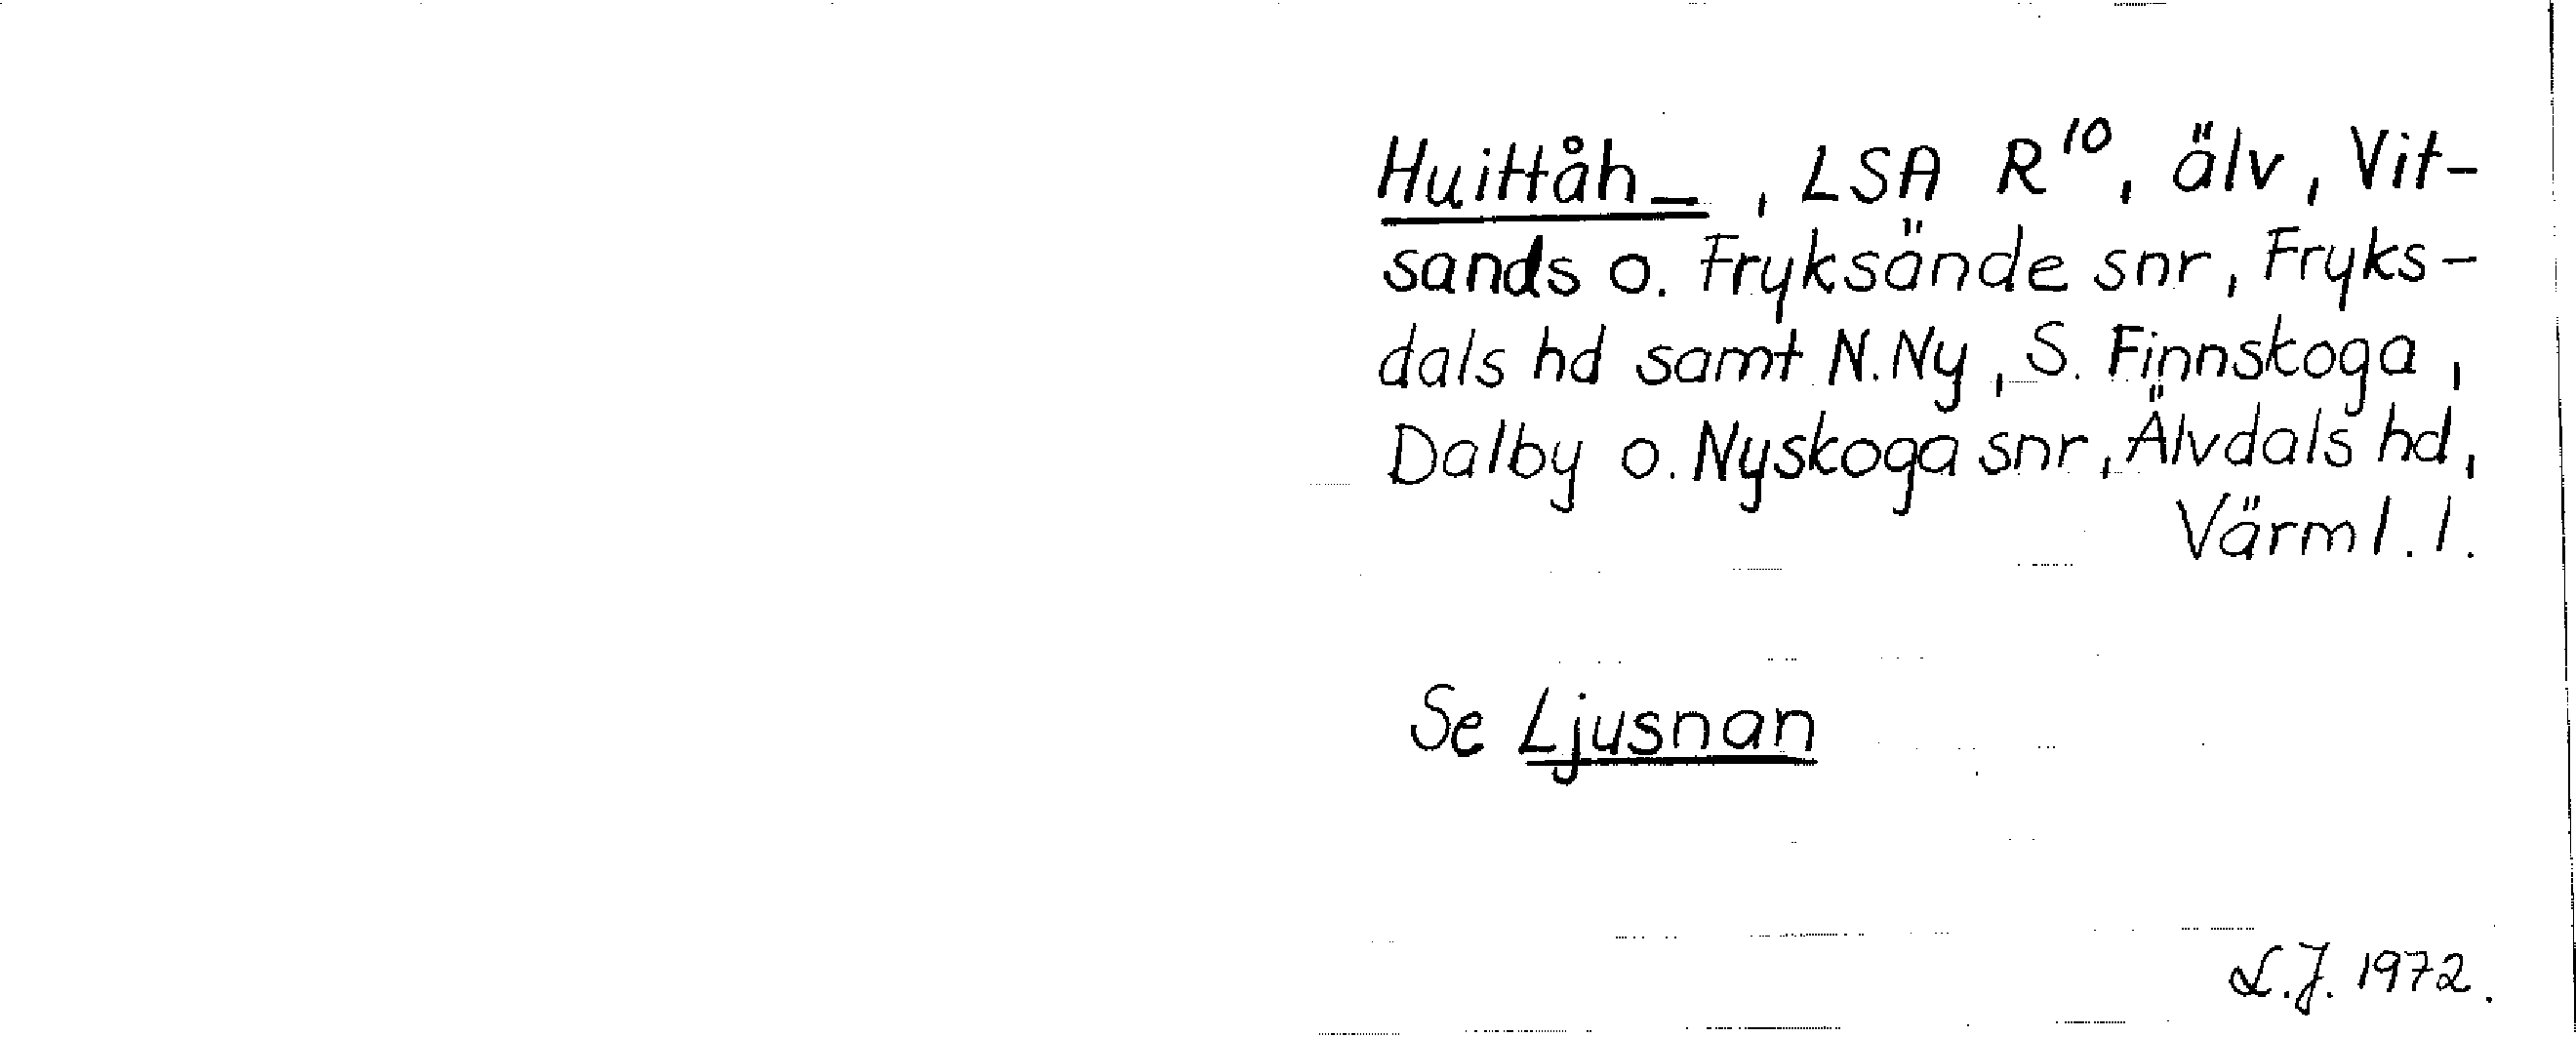 Huittåh_, LSA R¹⁰, älv, Vit-
sands o. Fryksände snr, Fryks-
dals hd samt N. Ny, S. Finnskoga,
Dalby o. Nyskoga snr, Älvdals hd,
Värml. l.
Se Ljusnan
L.J. 1972.